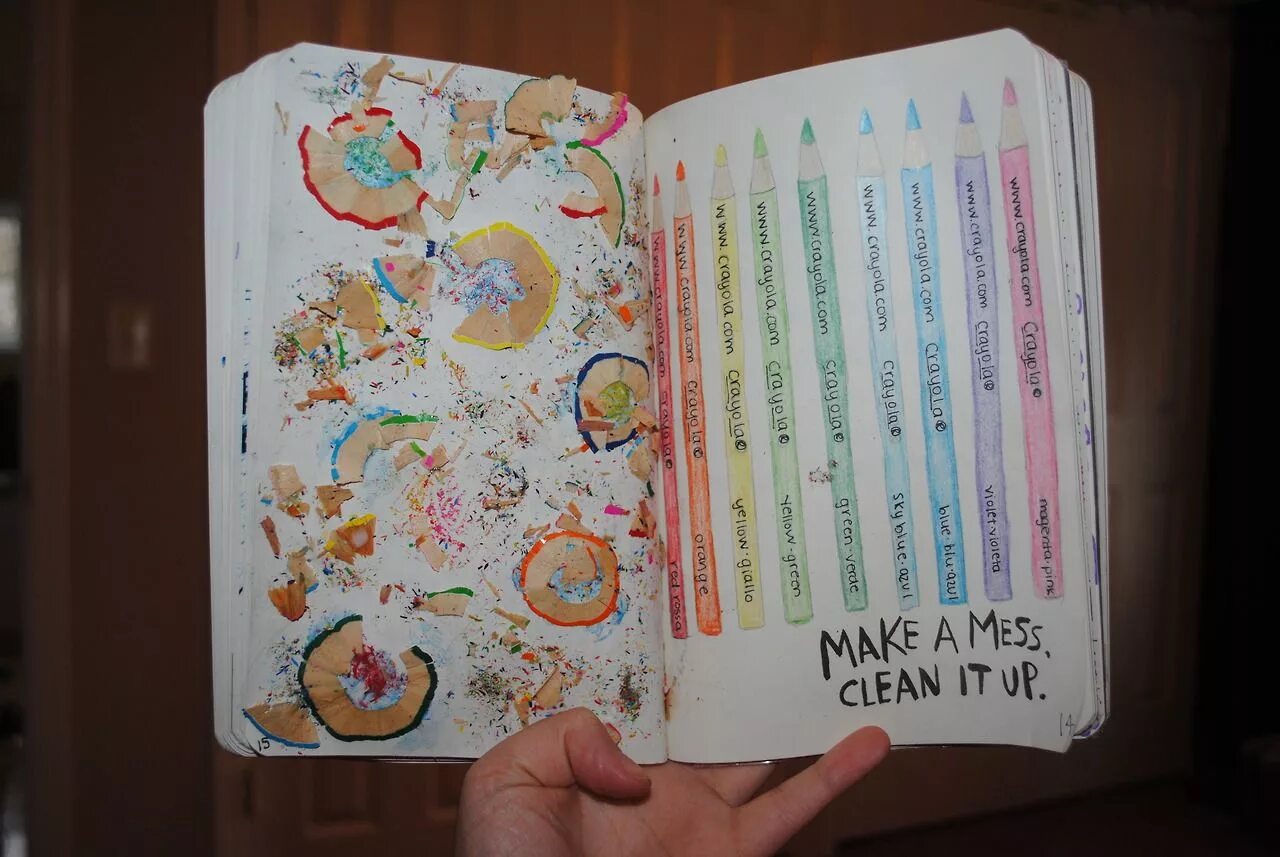 www.crayola.com crayola® red rossa
www.crayola.com crayola® orange
www.crayola.com crayola® yellow·giallo
www.crayola.com crayola® yellow·green
www.crayola.com crayola® green·verde
www.crayola.com crayola® sky blue·azul
www.crayola.com crayola® blue·blu·azul
www.crayola.com crayola® violet·violeta
www.crayola.com Crayola® magenta·pink
MAKE A MESS.
CLEAN IT UP.
15
14